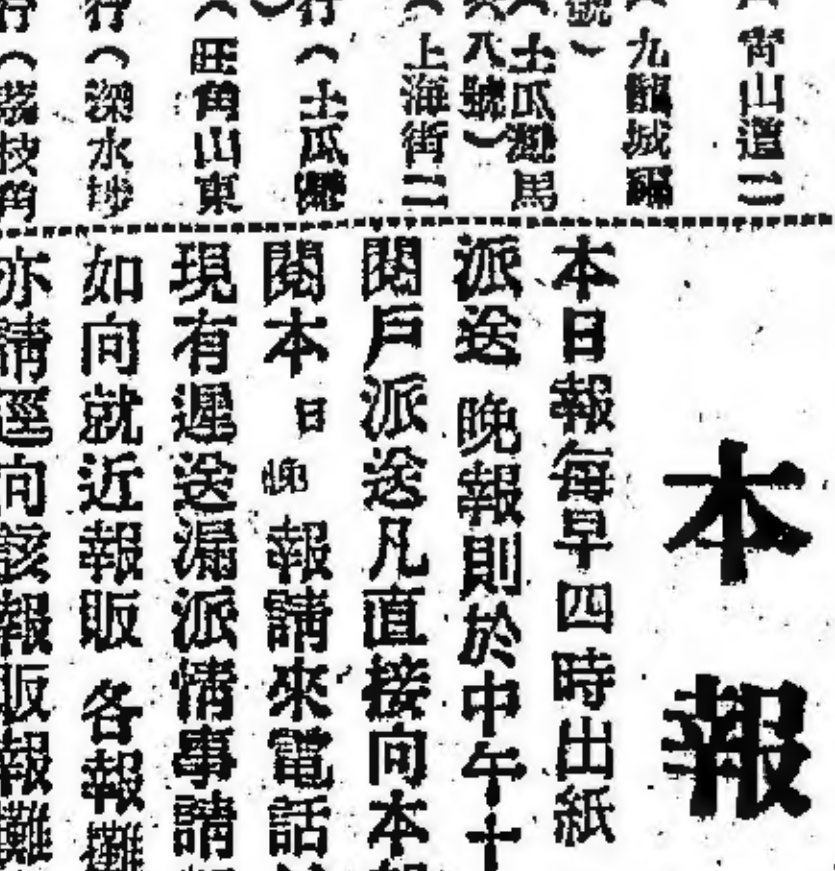 （青山道
（九龍城福
號）
（土瓜灣馬
八號）
（上海街二
行（土瓜灣
）
（旺角山東
行（深水埗
行（荔枝角
本報
本日報每早四時出紙
派送 晚報則於中午十
閱戶派送凡直接向本報
閱本日晚報請來電話
現有遲送漏派情事請
如向就近報販 各報攤
亦請逕向該報販報攤